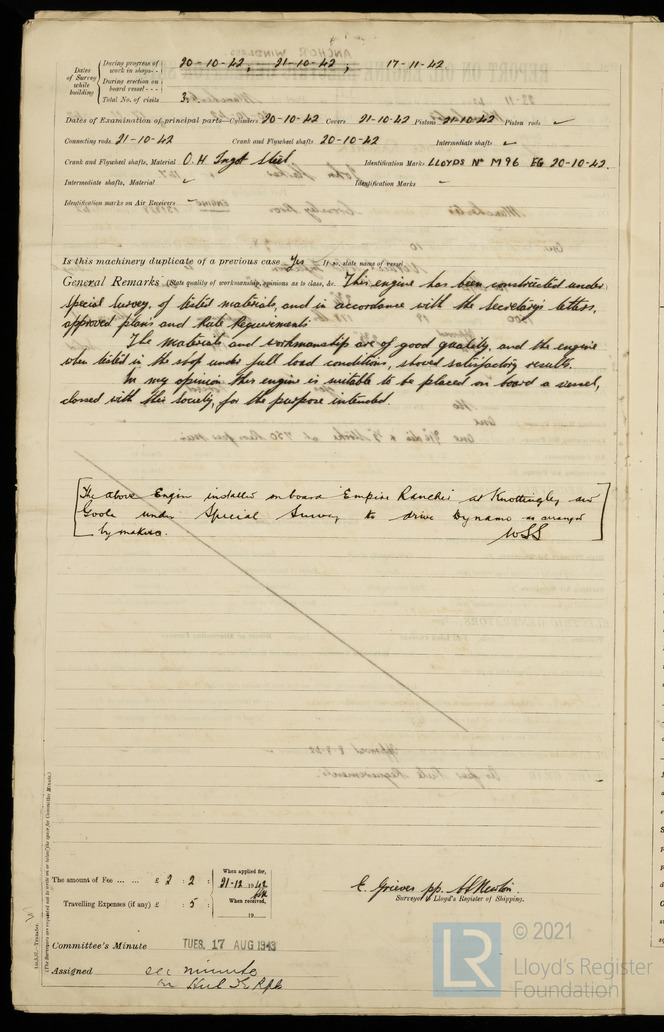 Dates of Survey while building
During progress of work in shops - - 20-10-42, 21-10-42, 17-11-42
During erection on board vessel - - -
Total No. of visits 3.
Dates of Examination of principal parts—Cylinders 20-10-42 Covers 21-10-42 Pistons 21-10-42 Piston rods ✓
Connecting rods 21-10-42 Crank and Flywheel shafts 20-10-42 Intermediate shafts ✓
Crank and Flywheel shafts, Material O.H Ingot Steel Identification Marks LLOYDS No M96 EG 20-10-42.
Intermediate shafts, Material ✓ Identification Marks -
Identification marks on Air Receivers
Is this machinery duplicate of a previous case Yes If so, state name of vessel
General Remarks (State quality of workmanship, opinions as to class, &c. This engine has been constructed under
special survey, of tested materials, and in accordance with the Secretary's letters,
approved plans and Rule Requirements.
The materials and workmanship are of good quality, and the engine
when tested in the shop under full load conditions, showed satisfactory results.
In my opinion this engine is suitable to be placed on board a vessel,
classed with this society, for the purpose intended.
The above Engine installed on board "Empire Ranche" at Knottingley and
Goole under Special Survey to drive Dynamo as arranged
by makers. WSS
The amount of Fee ... ... £ 2 : 2 :
When applied for, 21-12 1942
Travelling Expenses (if any) £ : 5 :
When received,
19
E. Grieves pp.
Surveyor to Lloyd's Register of Shipping.
Committee's Minute TUES. 17 AUG 1943
Assigned see minute
on Hull Rpt
(The Surveyors are requested not to write on or below the space for Committee's Minute.)
© 2021
Lloyd's Register
Foundation
LR